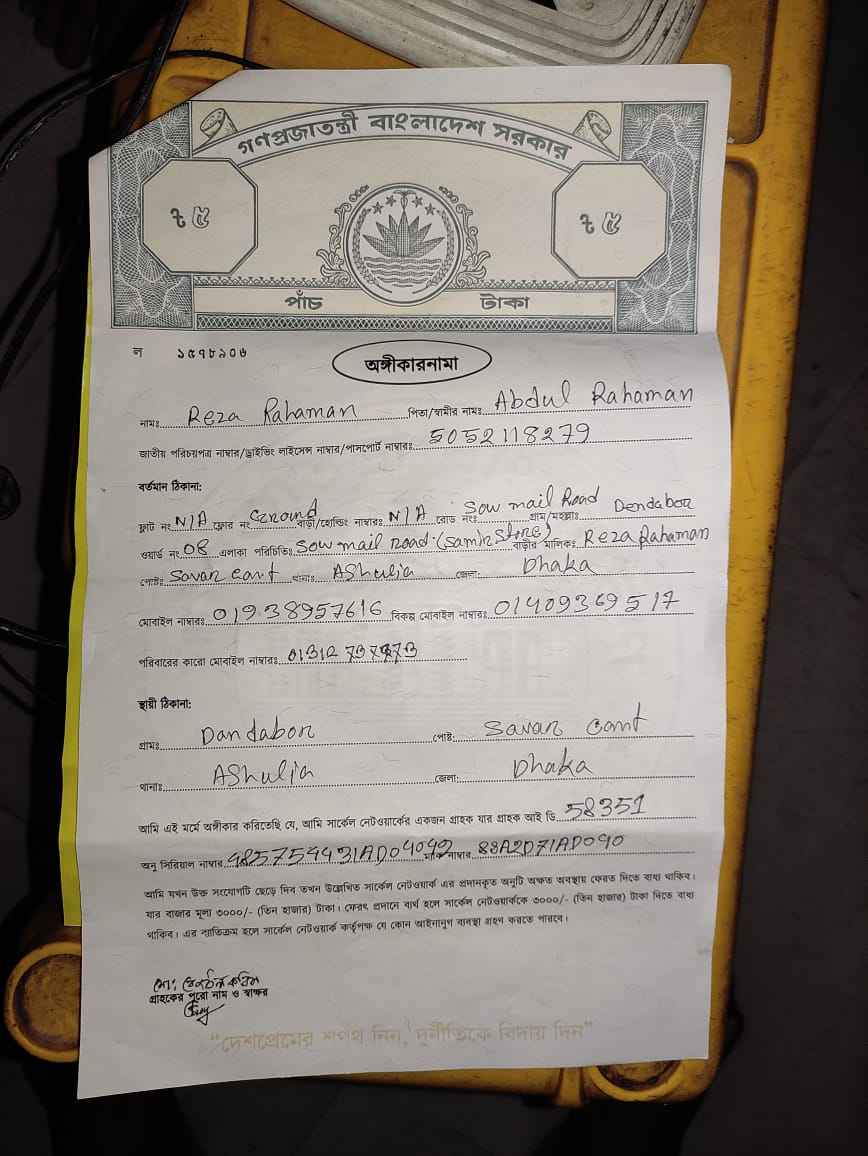 গণপ্রজাতন্ত্রী বাংলাদেশ সরকার
৳ ৫ ৳ ৫
পাঁচ টাকা
ল ১৫৭৮৯০৬
অঙ্গীকারনামা
নামঃ Reza Rahaman পিতা/স্বামীর নামঃ Abdul Rahaman
জাতীয় পরিচয়পত্র নাম্বার/ড্রাইভিং লাইসেন্স নাম্বার/পাসপোর্ট নাম্বারঃ 5052118279
বর্তমান ঠিকানা:
ফ্লাট নং N/A ফ্লোর নং Ground বাড়ী/হোল্ডিং নাম্বারঃ N/A রোড নংঃ Sow mail Road গ্রাম/মহল্লাঃ Dendabor
ওয়ার্ড নং 08 এলাকা পরিচিতিঃ Sow mail road (Samir Store) বাড়ীর মালিকঃ Reza Rahaman
পোষ্টঃ Savar cant থানাঃ AShulia জেলা: Dhaka
মোবাইল নাম্বারঃ 01938957616 বিকল্প মোবাইল নাম্বারঃ 01409369517
পরিবারের কারো মোবাইল নাম্বারঃ 01312
স্থায়ী ঠিকানা:
গ্রামঃ Dandabor পোষ্ট: Savar cant
থানাঃ AShulia জেলা: Dhaka
আমি এই মর্মে অঙ্গীকার করিতেছি যে, আমি সার্কেল নেটওয়ার্কের একজন গ্রাহক যার গ্রাহক আই ডি 58351
অনু সিরিয়াল নাম্বার 485754431AD04092 ম্যাক নাম্বার 88A2D71AD090
আমি যখন উক্ত সংযোগটি ছেড়ে দিব তখন উল্লেখিত সার্কেল নেটওয়ার্ক এর প্রদানকৃত অনুটি অক্ষত অবস্থায় ফেরত দিতে বাধ্য থাকিব।
যার বাজার মূল্য ৩০০০/- (তিন হাজার) টাকা। ফেরৎ প্রদানে ব্যর্থ হলে সার্কেল নেটওয়ার্ককে ৩০০০/- (তিন হাজার) টাকা দিতে বাধ্য
থাকিব। এর ব্যতিক্রম হলে সার্কেল নেটওয়ার্ক কর্তৃপক্ষ যে কোন আইনানুগ ব্যবস্থা গ্রহণ করতে পারবে।
মোঃ
গ্রাহকের পুরো নাম ও স্বাক্ষর
“দেশপ্রেমের শপথ নিন, দুর্নীতিকে বিদায় দিন”